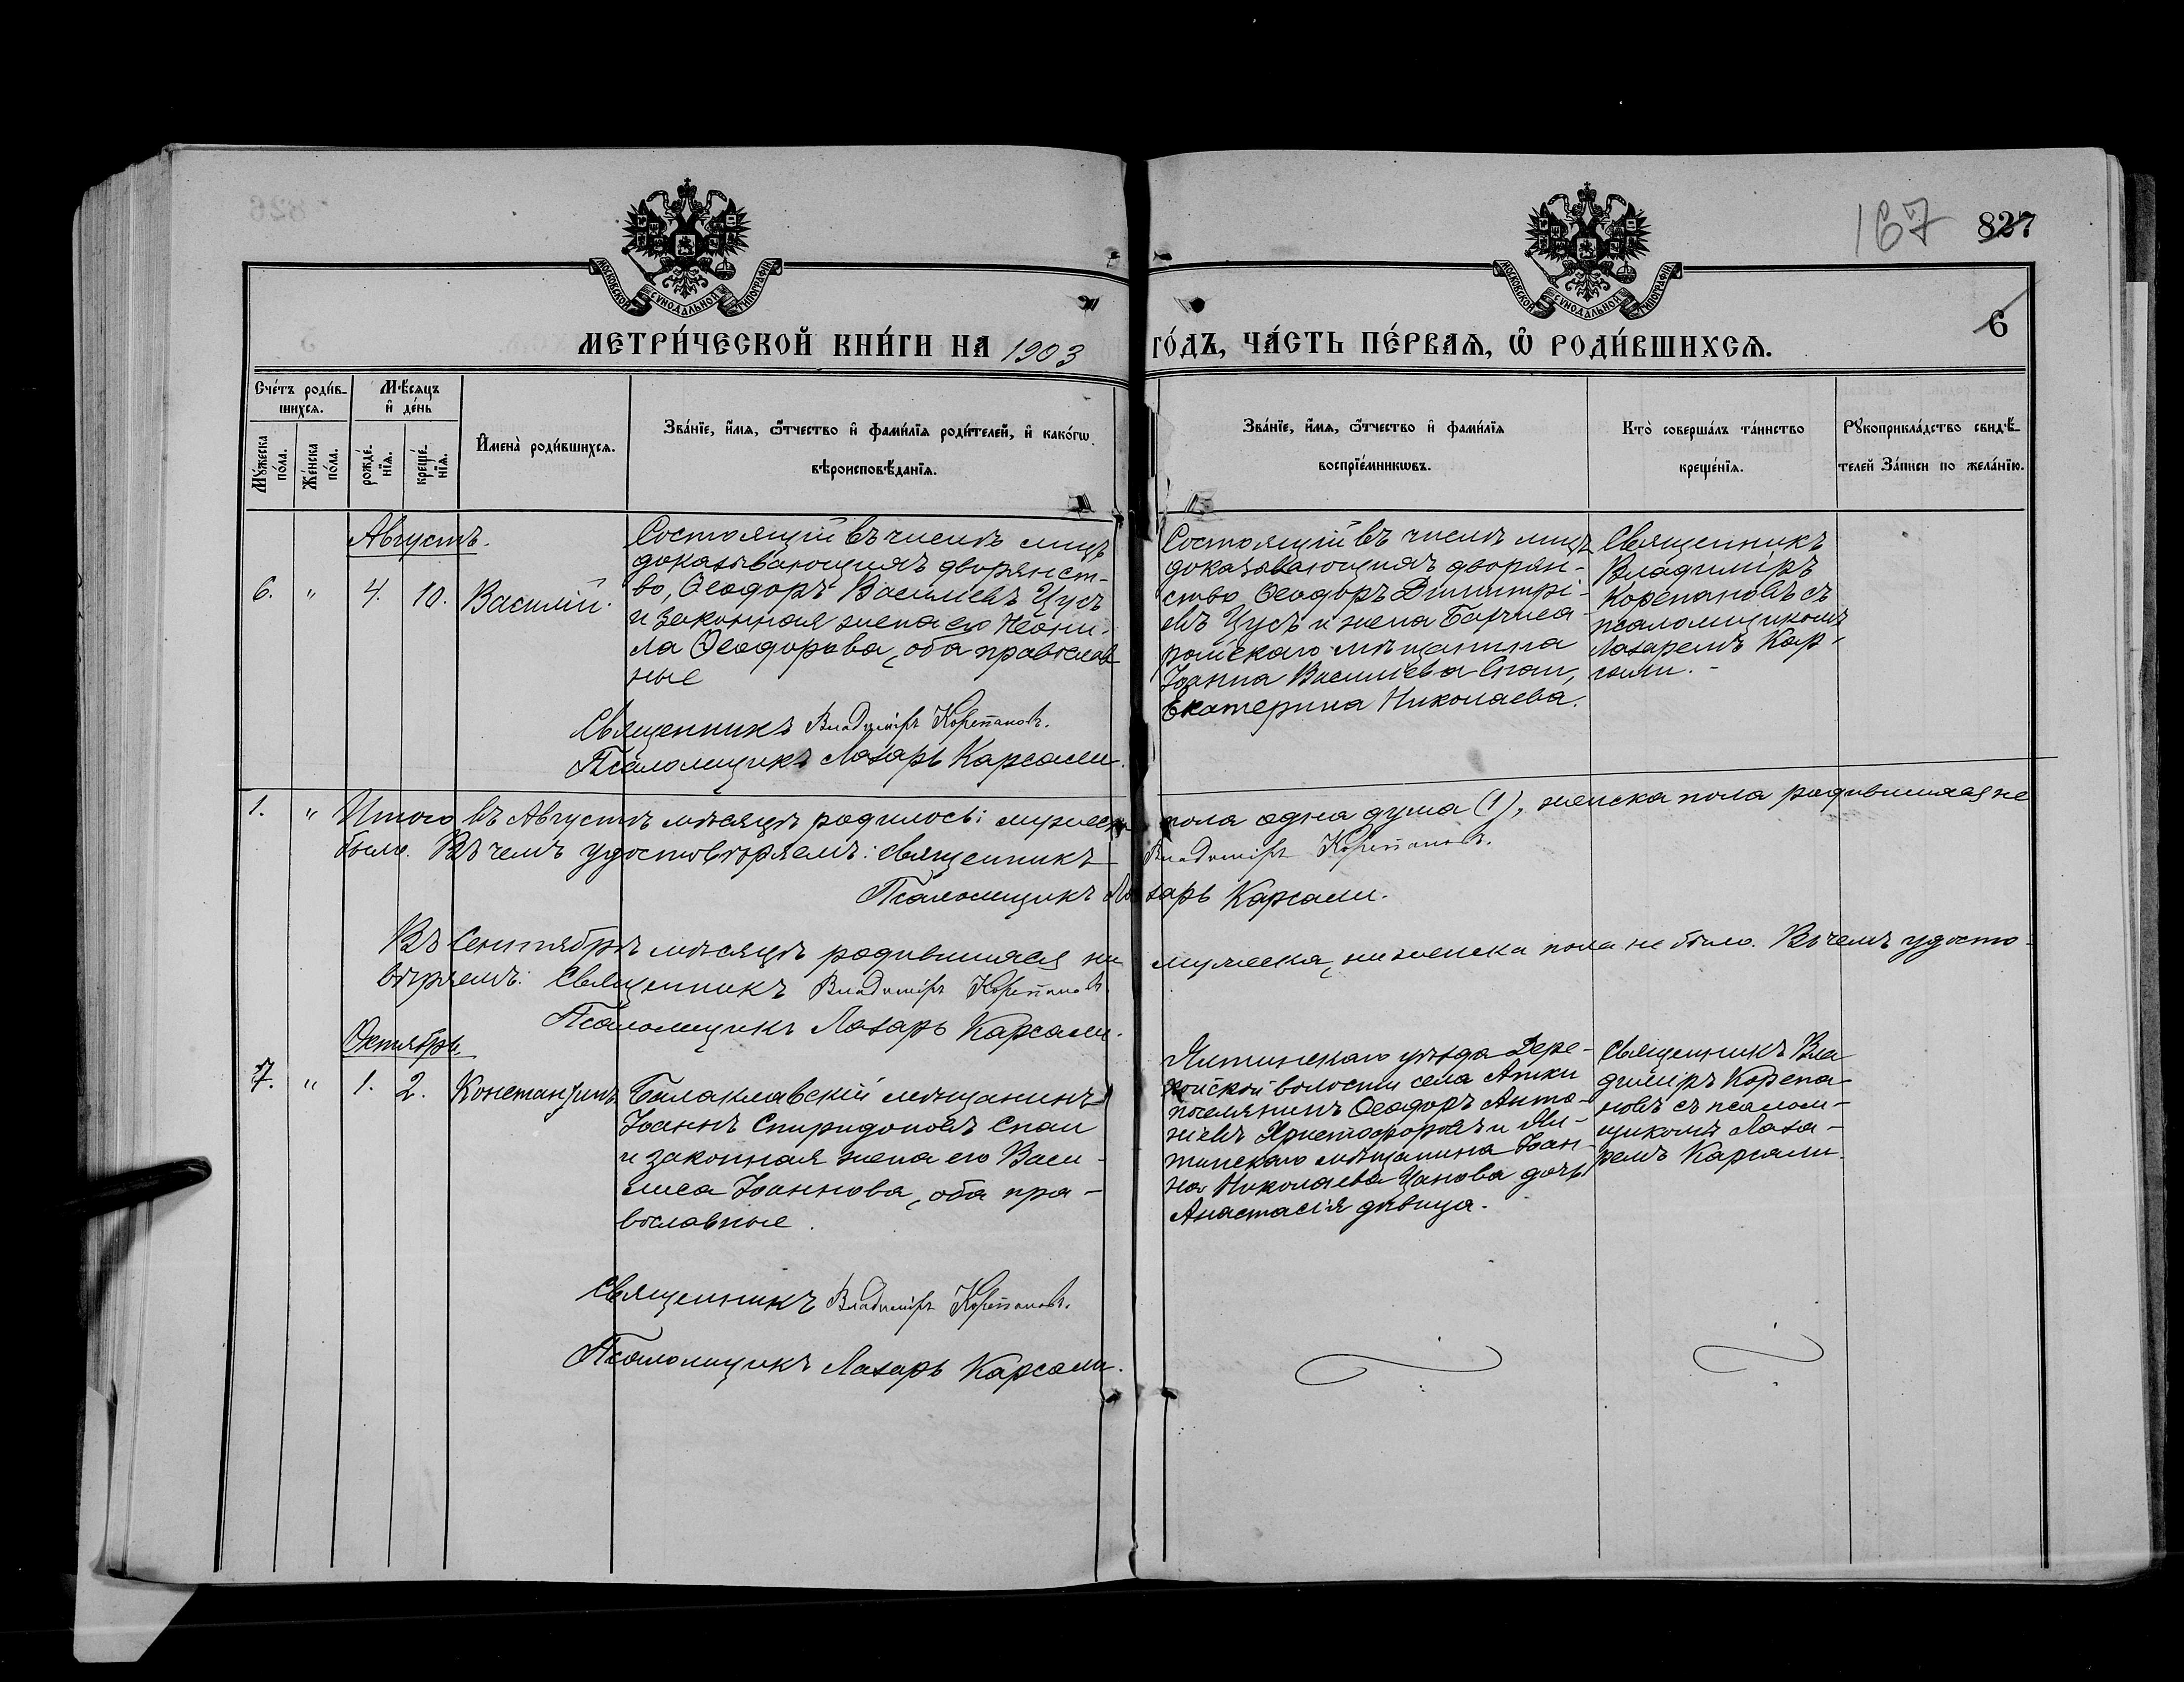 167 827
6
МОСКОВСКОЙ СУНОДАЛЬНОЙ ТИПОГРАФІИ
МОСКОВСКОЙ СУНОДАЛЬНОЙ ТИПОГРАФІИ
МЕТРИ́ЧЕСКОЙ КНИ́ГИ НА 1903 ГО́ДЪ, ЧА́СТЬ ПЕ́РВАѦ, Ѡ РОДИ́ВШИХСѦ.
Счéтъ роди́в-
шихсѧ.
Мꙋ́жеска
по́ла.
Же́нска
по́ла.
Мѣ́сѧцъ
и҆ де́нь
рожде́-
нїѧ.
креще́-
нїѧ.
И҆мена̀ роди́вшихсѧ.
Зва́нїе, и҆́мѧ, ѻ҆́тчество и҆ фами́лїѧ роди́телей, и҆ како́гѡ
вѣроисповѣ́данїѧ.
Зва́нїе, и҆́мѧ, ѻ҆́тчество и҆ фами́лїѧ
воспрїе́мникѡвъ.
Кто̀ соверша́лъ та́инство
креще́нїѧ.
Рꙋкоприкла́дство свидѣ́-
телей за́писи по жела́нїю.
Августъ.
6. " 4. 10. Василій.
Состоящій въ числѣ лицъ
доказывающихъ дворянст-
во, Ѳеодоръ Васильевъ Цусъ
и законная жена его Неони-
ла Ѳеодорова, оба православ
ные
Священникъ Владиміръ Корепановъ.
Псаломщикъ Лазарь Карсали.
Состоящій въ числѣ лицъ
доказывающихъ дворян-
ство Ѳеодоръ Димитрі-
евъ Цусъ и жена Бахчиса
райскаго мѣщанина
Іоанна Васильева Спаи,
Екатерина Николаева.
Священникъ
Владиміръ
Корепановъ съ
псаломщикомъ
Лазаремъ Кар-
сали.-
1. " Итого въ Августѣ мѣсяцѣ родилось: мужеска пола одна душа (1), женска пола родившихся не
было. Въ чемъ удостовѣряемъ: Священникъ Владиміръ Корепановъ.
Псаломщикъ Лазарь Карсали.
Въ Сентябрѣ мѣсяцѣ родившихся ни мужеска, ни женска пола не было. Въ чемъ удосто-
вѣряемъ: Священникъ Владиміръ Корепановъ.
Псаломщикъ Лазарь Карсали.
Октябрь.
7. " 1. 2. Константинъ
Балаклавскій мѣщанинъ
Іоаннъ Спиридоновъ Спаи
и законная жена его Васи-
лиса Іоаннова, оба пра-
вославные.
Священникъ Владиміръ Корепановъ.
Псаломщикъ Лазарь Карсали.
Ялтинскаго уѣзда Дере-
койской волости села Аутки
поселянинъ Ѳеодоръ Анто-
ніевъ Христофоровъ и Ял-
тинскаго мѣщанина Іоан
на Николаева Цанова дочь
Анастасія дѣвица.
Священникъ Вла
диміръ Корепа-
новъ съ псалом-
щикомъ Лаза-
ремъ Карсали.